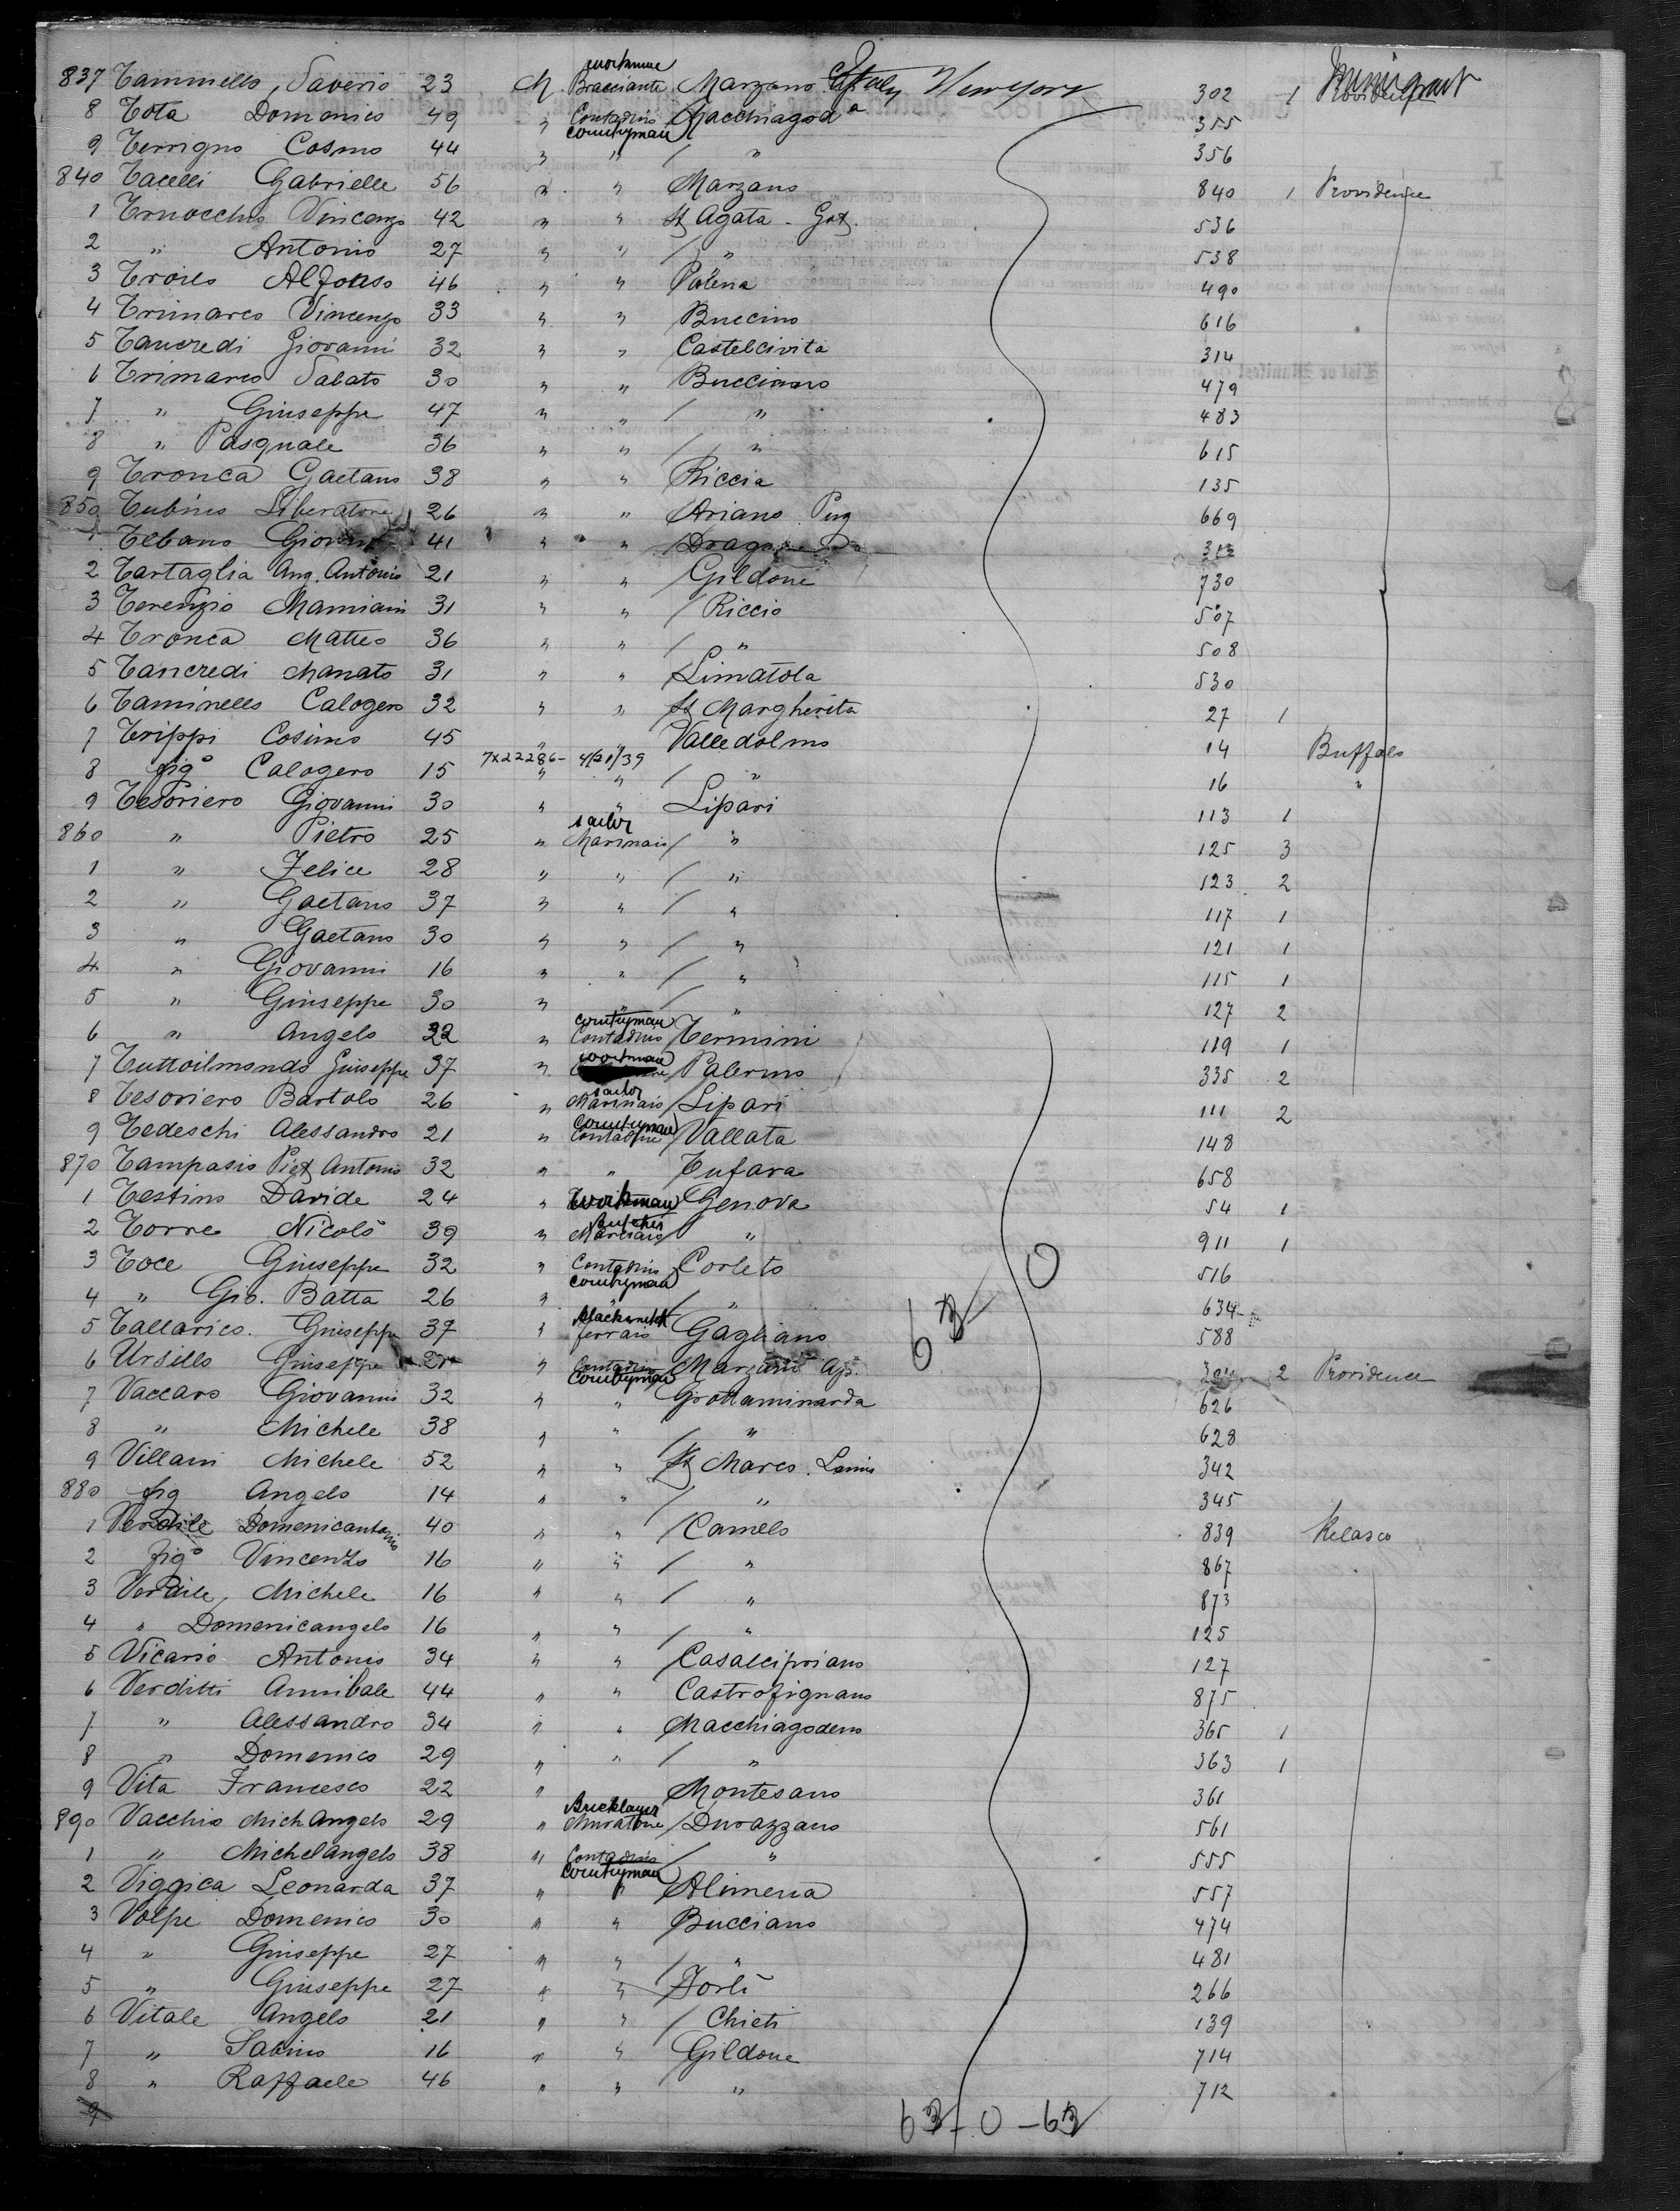 837 Taminello, Saverio 23 M. workman Bracciante Marzano Italy New York 302 1 Immigrant
8 Tota Domenico 49 " Contadino countryman Macchiagod a 355
9 Terrigno Cosmo 44 " " / " 356
840 Tacelli Gabrielle 56 " " Marzano 840 1 Providence
1 Truocchio Vincenzo 42 " " St Agata - Got. 536
2 " Antonio 27 " " / " 538
3 Troilo Alfonso 46 " " Palena 490
4 Trimarco Vincenzo 33 " " Buccino 616
5 Tancredi Giovanni 32 " " Castelcivita 314
6 Trimarco Sabato 30 " " Buccinaro 479
7 " Giuseppe 47 " " / " 483
8 " Pasquale 36 " " / " 615
9 Tronca Gaetano 38 " " Riccia 135
850 Tubino Liberatore 26 " " Ariano Pug 669
1 Tebano 41 " " 313
2 Tartaglia Ang. Antonio 21 " " / Gildone 730
3 Terenzio Mamiani 31 " " / Riccio 507
4 Tronca Matteo 36 " " / " 508
5 Tancredi Manato 31 " " Limatola 530
6 Taminello Calogero 32 " " St Margherita 27 1
7 Trippi Cosimo 45 " " Valledolmo 14 Buffalo
7x22286- 4/21/39
8 figo Calogero 15 " " / " 16 "
9 Tesoriero Giovanni 30 " " Lipari 113 1
860 " Pietro 25 " sailor Marinaio / " 125 3
1 " Felice 28 " " / " 123 2
2 " Gaetano 37 " " / " 117 1
3 " Gaetano 30 " " / " 121 1
4 " Giovanni 16 " " / " 115 1
5 " Giuseppe 30 " " / " 127 2
6 " Angelo 32 " countryman Contadino Termini 119 1
7 Tuttoilmondo Giuseppe 37 " workman Palermo 335 2
8 Tesoriero Bartolo 26 " sailor Marinaio Lipari 111 2
9 Tedeschi Alessandro 21 " countryman Contadine Vallata 148
870 Tampasio Piet Antonio 32 " " Tufara 658
1 Testino Davide 24 " workman Genova 54 1
2 Torre Nicolò 39 " Butcher " 911 1
3 Toce Giuseppe 32 " Contadino countryman Corleto 516
4 " Gio. Batta 26 " " / " 634
63 0
5 Tallarico. Giuseppe 37 " blacksmith ferraro Gagliano 588
6 Ursillo Giuseppe " Contadino countryman Marzano Ap. 304 2 Providence
7 Vaccaro Giovanni 32 " " Grottaminarda 626
8 " Michele 38 " " / " 628
9 Villani Michele 52 " " St Marco. Lamis 342
880 fig Angelo 14 " " / " 345
1 Verdile Domenicantonio 40 " " / Camelo 839 Kelasco
2 figo Vincenzo 16 " " / " 867
3 Verdile, Michele 16 " " / " 873
4 " Domenicangelo 16 " " / " 125
5 Vicario Antonio 34 " " / Casalcipriano 127
6 Verditti Annibale 44 " " Castrofignano 875
7 " Alessandro 34 " " Macchiagodeno 365 1
8 " Domenico 29 " " / " 363 1
9 Vita Francesco 22 " Montesano 361
890 Vacchio MichAngelo 29 " Bricklayer Muratore / Durazzano 561
1 " Michelangelo 38 " Contadino countryman / " 555
2 Viggica Leonarda 37 " " Alimena 557
3 Volpe Domenico 30 " " Bucciano 474
4 " Giuseppe 27 " " / " 481
5 " Giuseppe 27 " " Forlì 266
6 Vitale Angelo 21 " " / Chieti 139
7 " Sabino 16 " " Gildone 714
8 " Raffaele 46 " " " 712
9
63 - 0 - 63